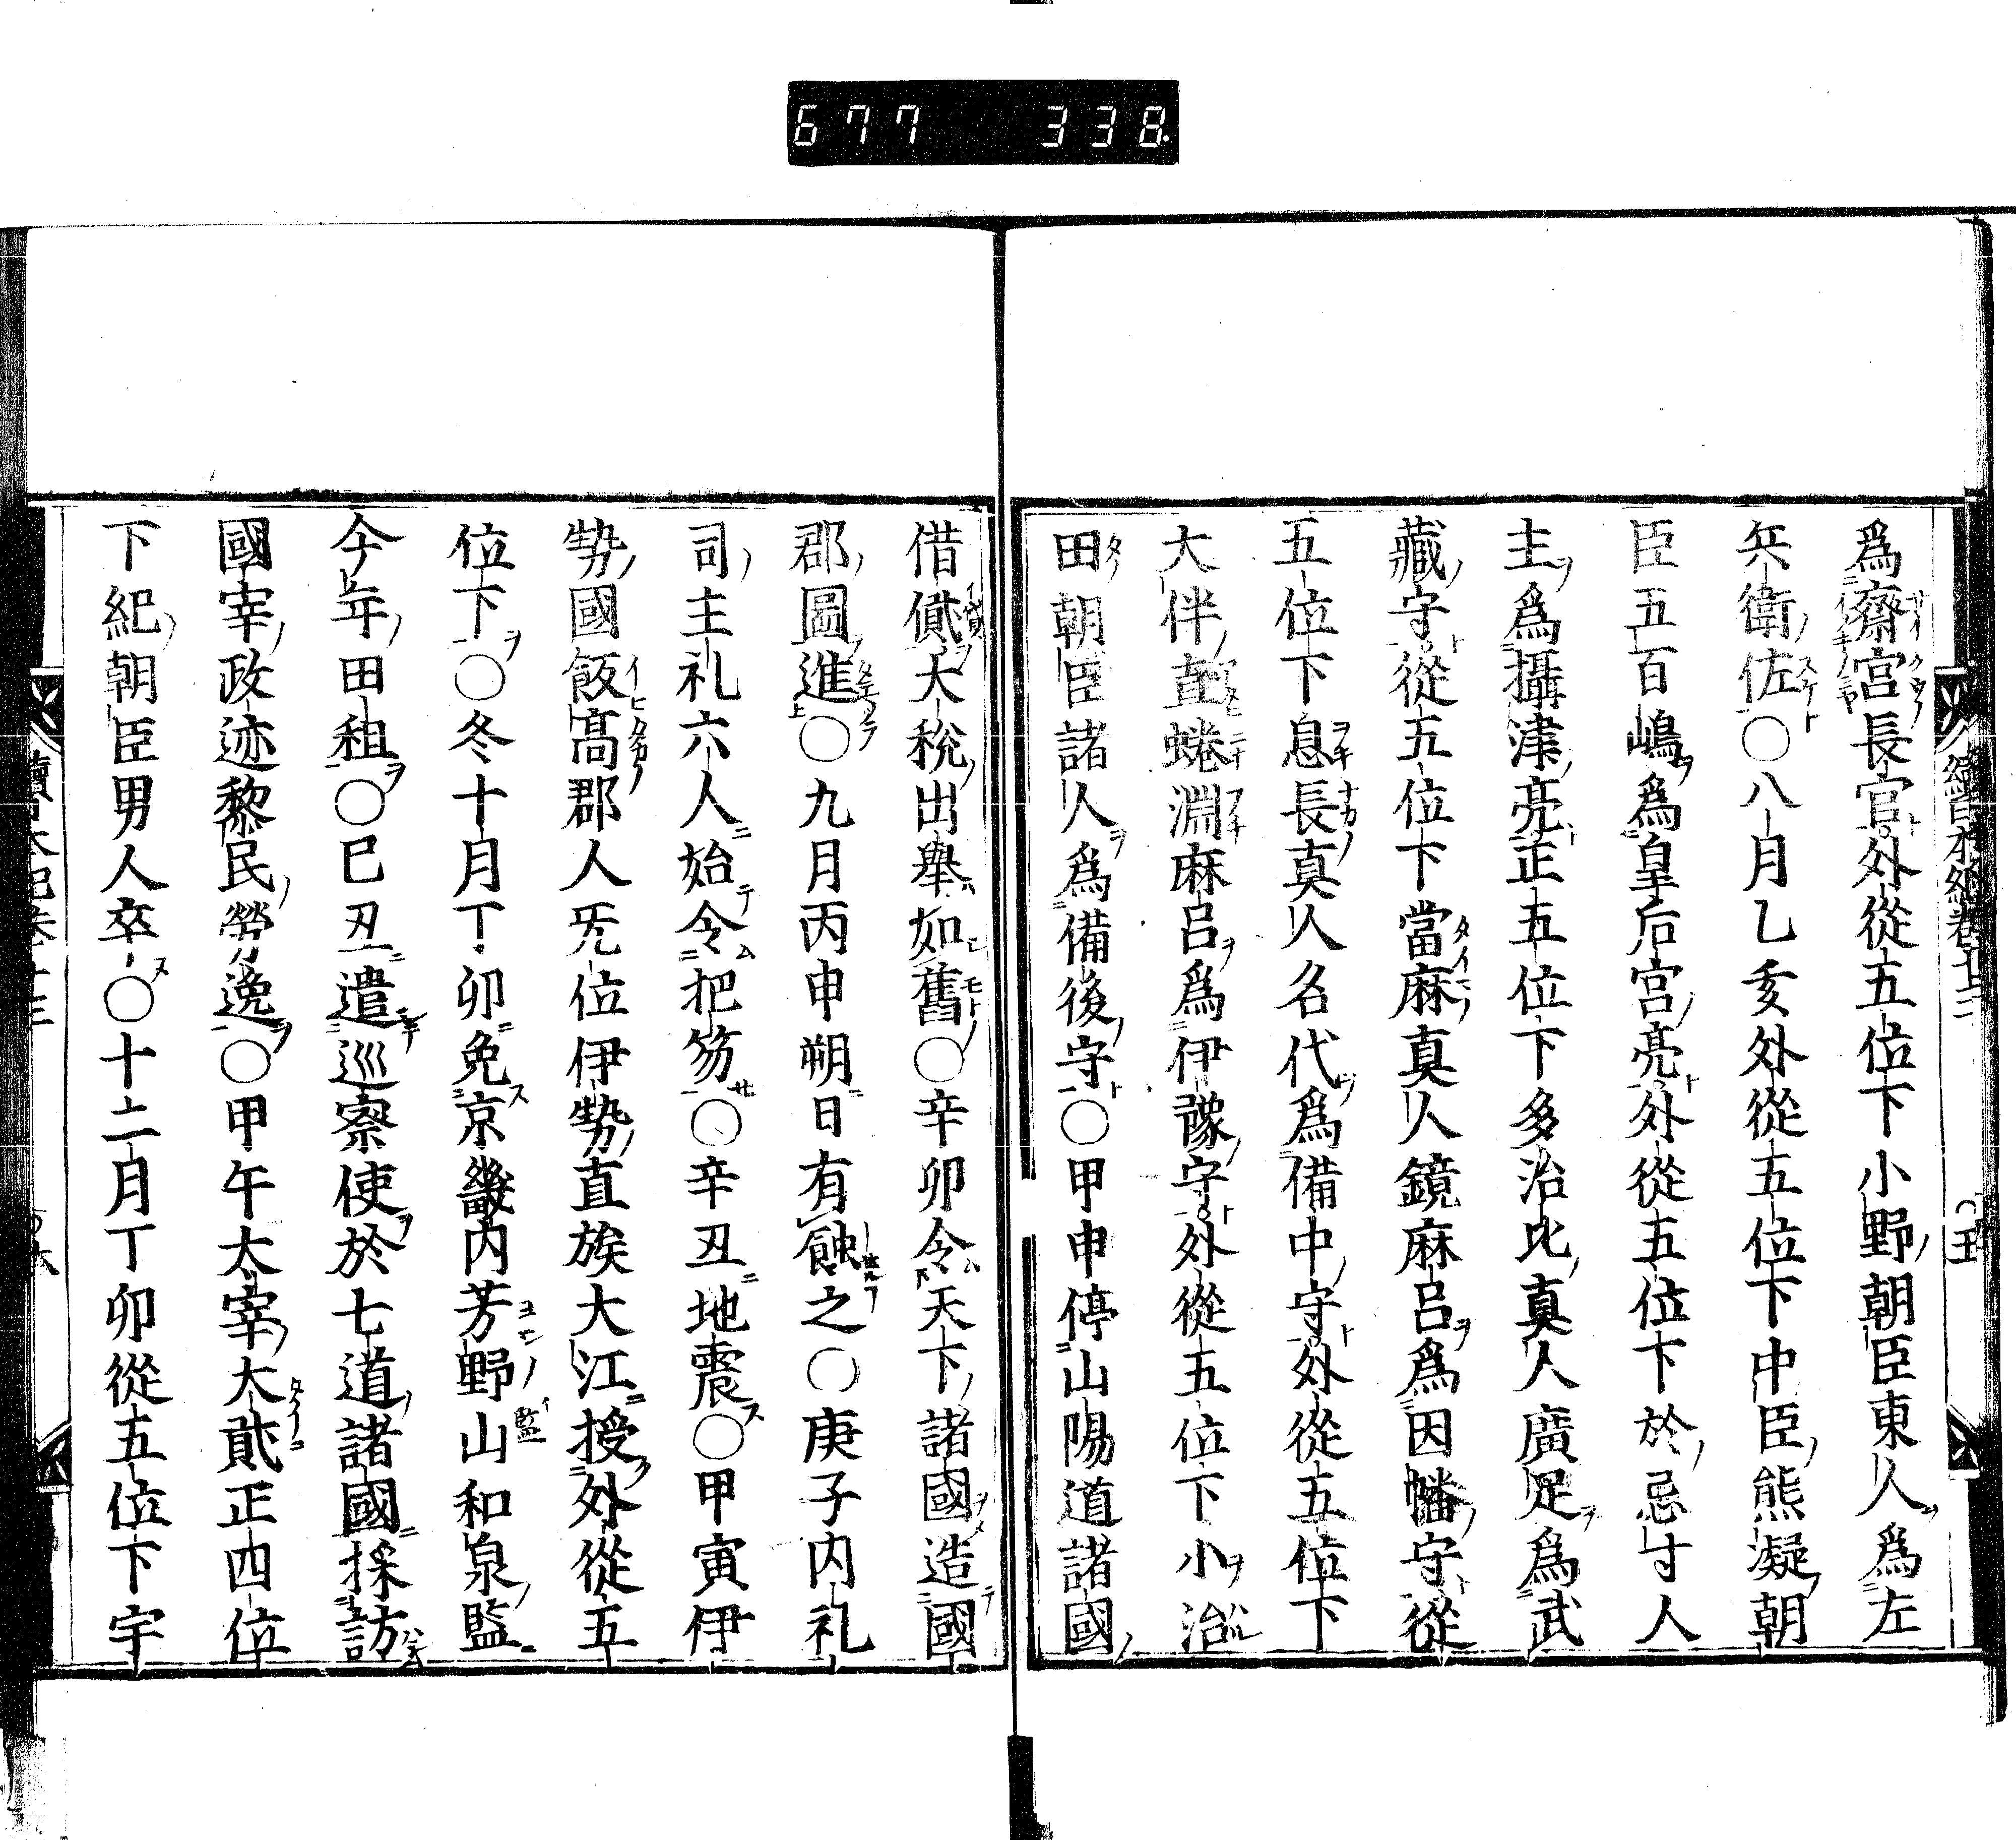 677 338.
爲齋宮長官外從五位下小野朝臣東人爲左
兵衛佐〇八月乙亥外從五位下中臣熊凝朝
臣五百嶋爲皇后宮亮外從五位下於忌寸人
主爲攝津亮正五位下多治比真人廣足爲武
藏守從五位下當麻真人鏡麻呂爲因幡守從
五位下息長真人名代爲備中守外從五位下
大伴直蜷淵麻呂爲伊豫守外從五位下小治
田朝臣諸人爲備後守〇甲申停山陽道諸國
借貸大稅出舉如舊〇辛卯令天下諸國造國
郡圖進〇九月丙申朔日有蝕之〇庚子内礼
司主礼六人始令把笏〇辛丑地震〇甲寅伊
勢國飯髙郡人旡位伊勢直族大江授外從五
位下〇冬十月丁卯免京畿内芳野山和泉監
今年田租〇巳丑遣巡察使於七道諸國採訪
國宰政迹黎民勞逸〇甲午太宰大貳正四位
下紀朝臣男人卒〇十二月丁卯從五位下宇